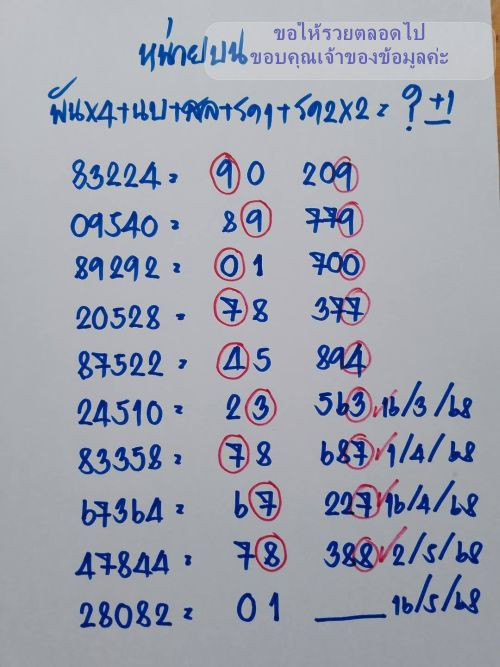 ขอให้รวยตลอดไป
ขอบคุณเจ้าของข้อมูลค่ะ
หน่วยบน
พันx4+นบ+สล+รถ1+รถ2x2= ? +1
83224= 90 209
09540= 89 779
89292= 01 700
20528= 78 377
87522= 45 894
24510= 23 563 16/3/68
83358= 78 687 1/4/68
67364= 67 227 16/4/68
47844= 78 388 2/5/68
28082= 01 ____ 16/5/68